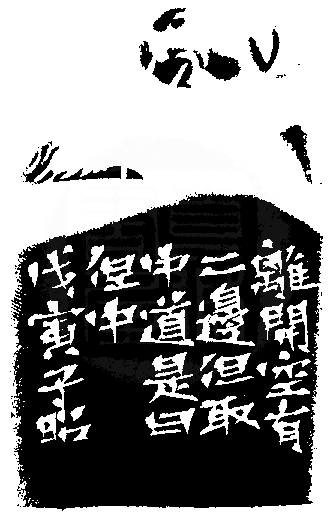 離開空有
二邊但取
中道是曰
中
戊寅子昭